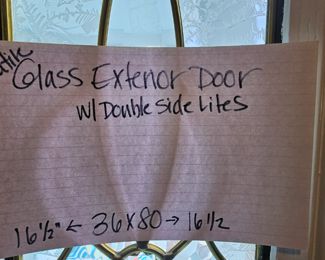 Glass Exterior Door
w/ Double Side Lites
16 1/2" ← 36x80 → 16 1/2